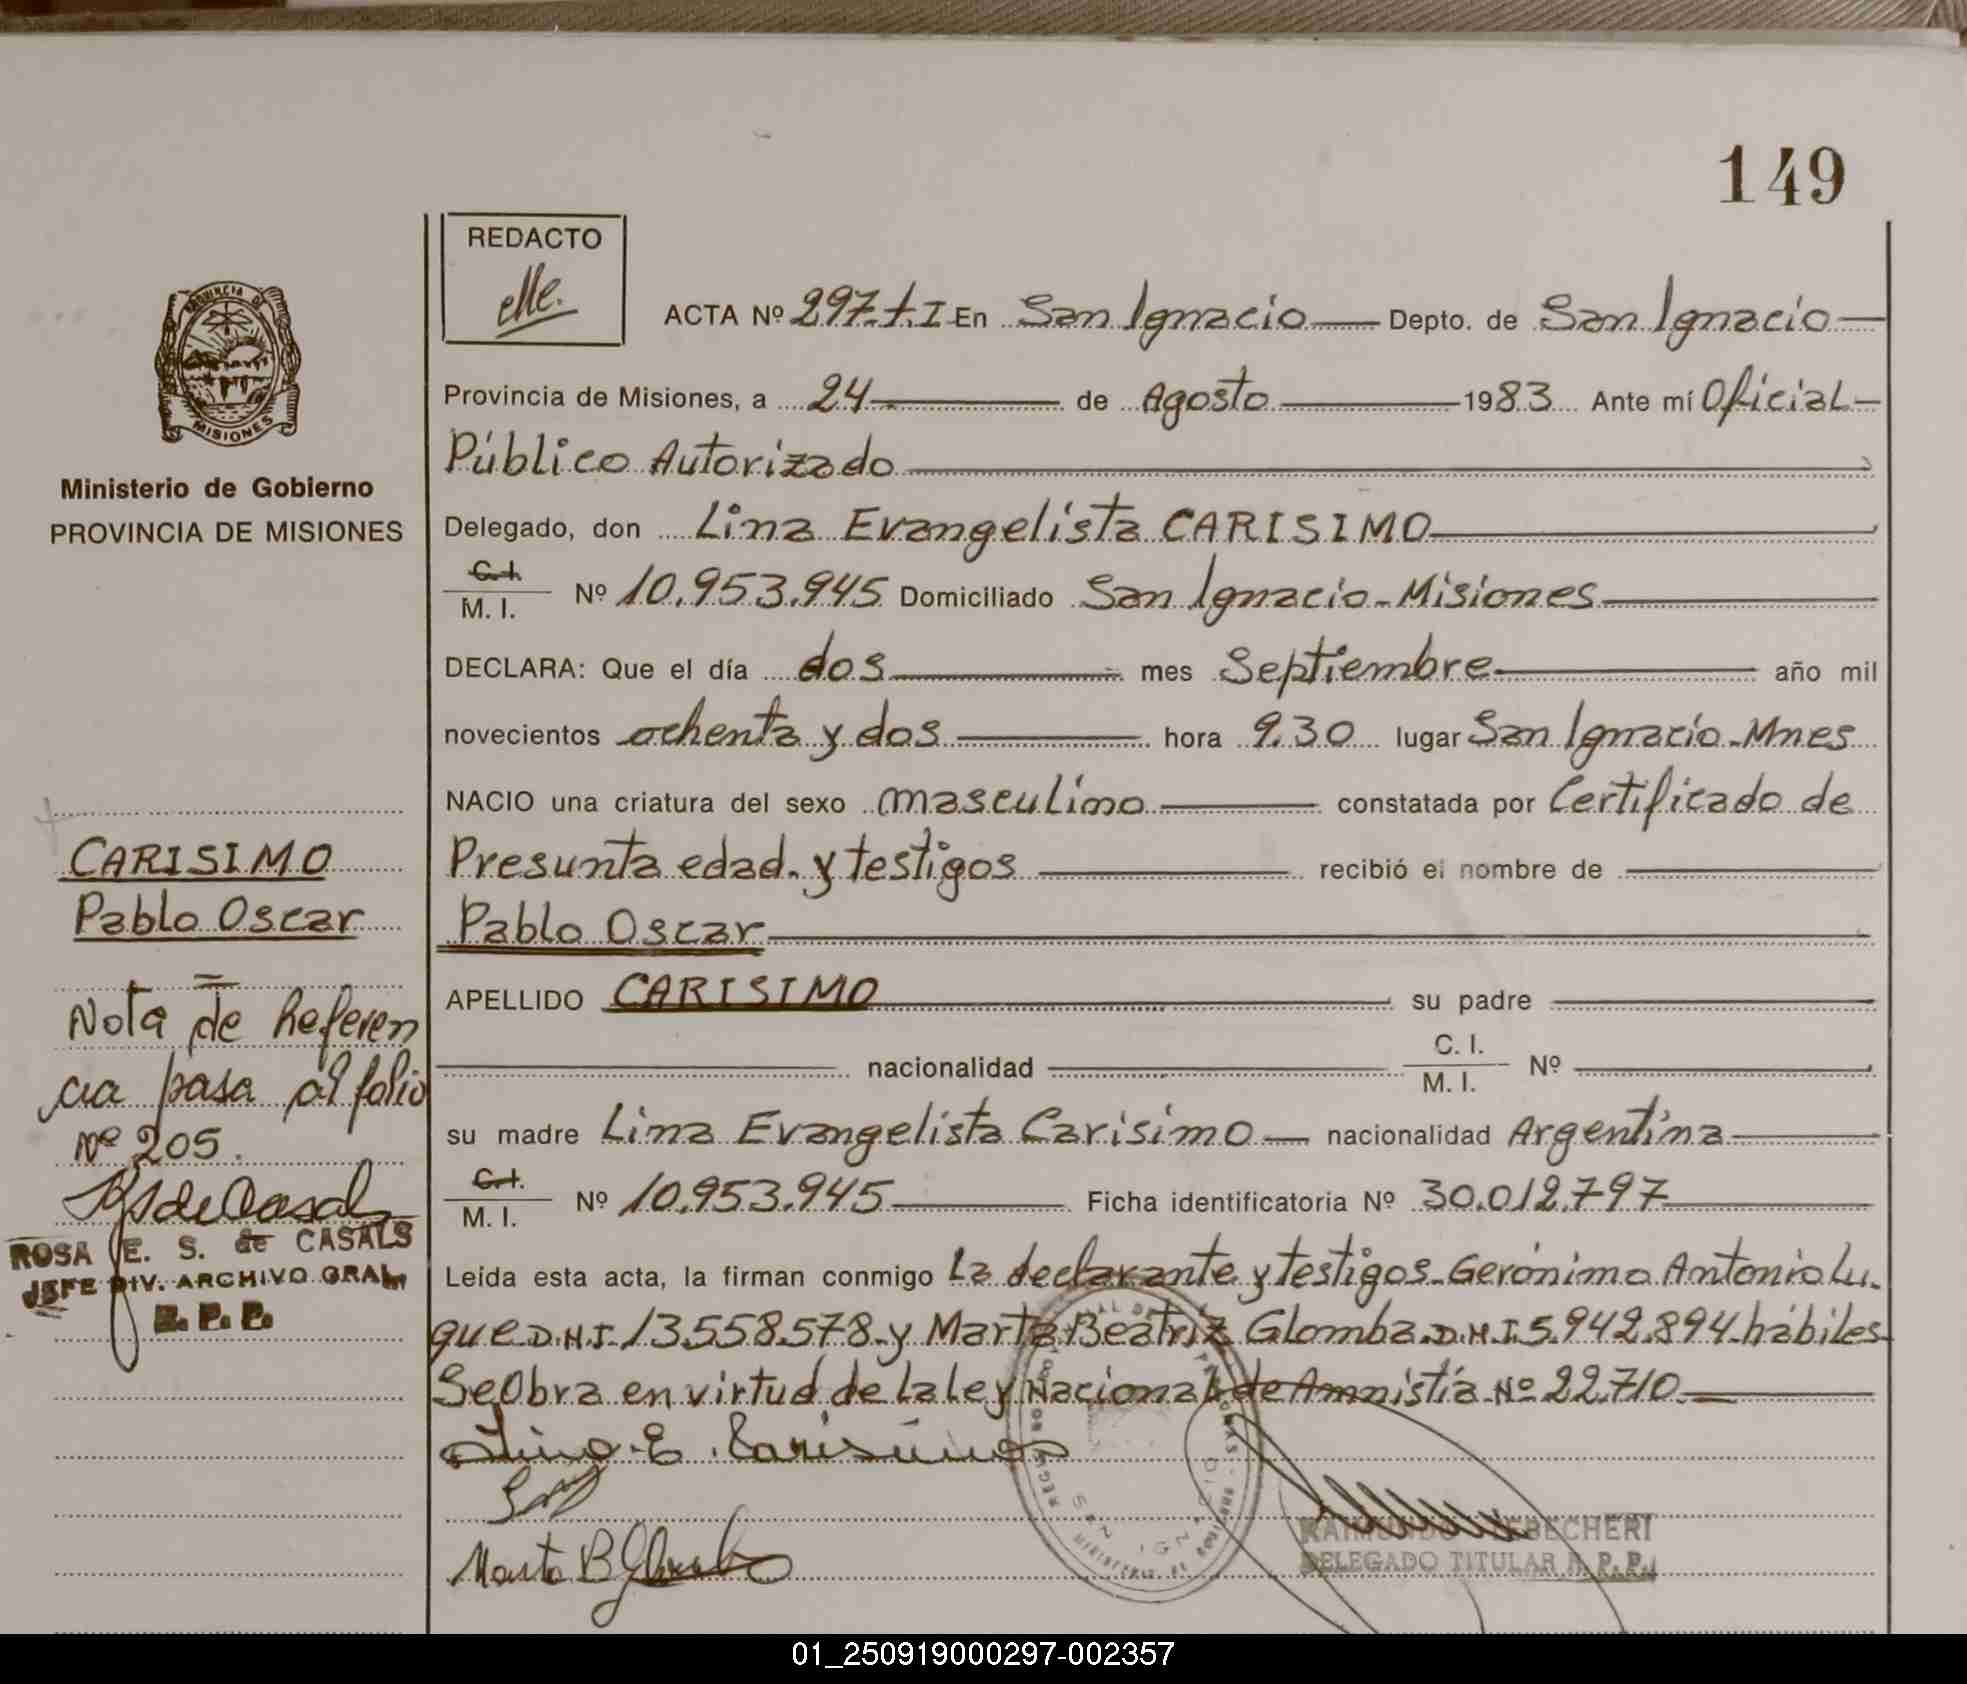 149
REDACTO
elle.
PROVINCIA DE
MISIONES
Ministerio de Gobierno
PROVINCIA DE MISIONES
ACTA Nº 297-t.I En San Ignacio Depto. de San Ignacio
Provincia de Misiones, a 24 de Agosto 1983 Ante mí Oficial
Público Autorizado
Delegado, don Lina Evangelista CARISIMO
C.I. M. I. Nº 10.953.945 Domiciliado San Ignacio-Misiones
DECLARA: Que el día dos mes Septiembre año mil
novecientos ochenta y dos hora 9.30 lugar San Ignacio-Mnes
NACIO una criatura del sexo masculino constatada por Certificado de
Presunta edad. y testigos recibió el nombre de
Pablo Oscar
APELLIDO CARISIMO su padre
nacionalidad C. I. M. I. Nº
su madre Lina Evangelista Carisimo nacionalidad Argentina
C.I. M. I. Nº 10.953.945 Ficha identificatoria Nº 30.012.797
Leída esta acta, la firman conmigo La declarante y testigos-Gerónimo Antonio Lu-
que D.N.I. 13.558.578-y Marta Beatriz Glomba D.N.I. 5.942.894-hábiles-
Se Obra en virtud de la ley Nacional de Amnistía Nº 22.710.
Lina E. Carisimo
Marta B Glomba
DELEGADO TITULAR R. P. P.
CARISIMO
Pablo Oscar
Nota de Referen
cia pasa al folio
Nº 205.
RS de Casals
ROSA E. S. de CASALS
JEFE DIV. ARCHIVO GRAL
R. P. P.
01_250919000297-002357